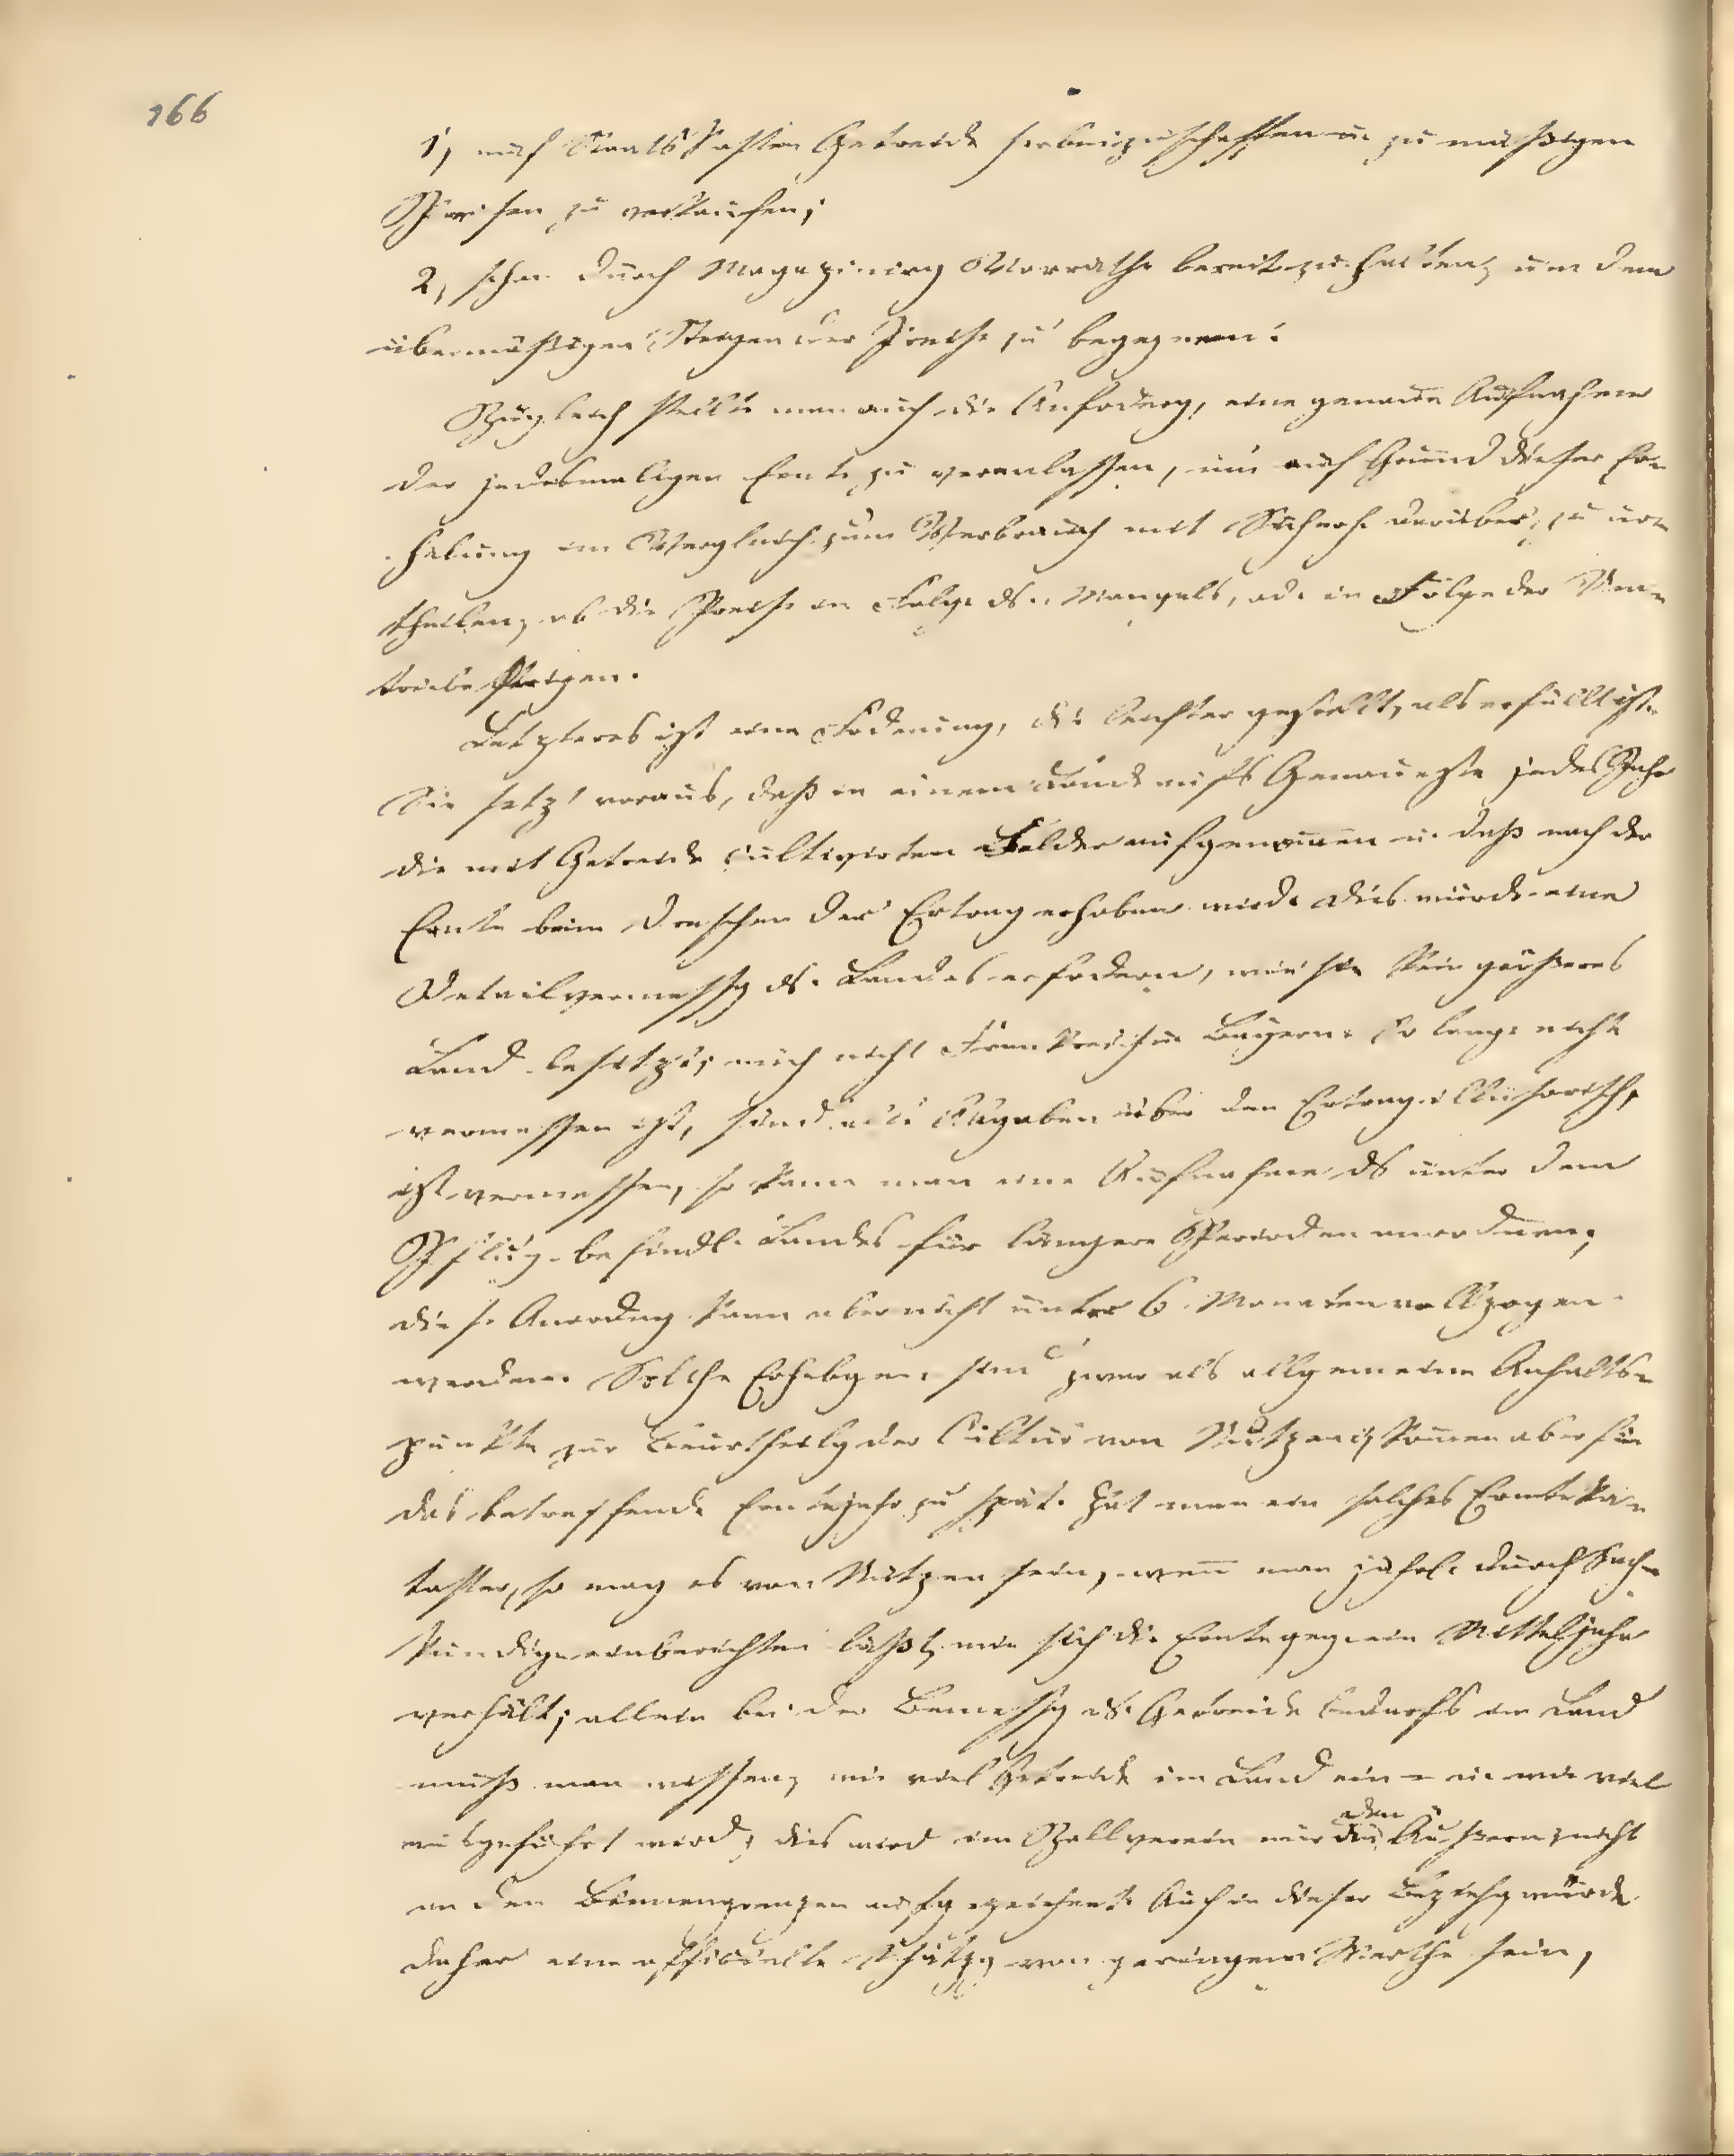 166
1, auf Staatskosten Getreide herbeizuschaffen u. zu mäßigen
Preisen zu verkaufen;
2, schon durch Magazinirg Vorräthe bereitzuhalten, um dem
übermäßigen Steigen der Preise zu begegnen.
Zugleich stellte man auch die Anfoderg, eine genaue Aufnahme
der jedesmaligen Ernte zu veranlassen, um auf Grund dieser Er-
hebung im Vergleich zum Verbrauch mit Sicherh. darüber zu ur-
theilen, ob die Preise in Folge ds. Mangels, od. in Folge der
steigen.
Letzteres ist eine Foderung, die leichter gestellt, als erfüllt ist.
Sie setzt voraus, daß in einem Lande aufs Genaueste jedes Jahr
die mit Getreide cultivirten Felder aufgenom̄en u. daß nach der
Ernte beim Dreschen der Ertrag erhoben wird. Dies würde eine
Detailvermessg ds. Landes erfodern, wie sie kein größeres
Land besitzt, auch nicht Frankreich u. Bayern. So lange nicht
vermessen ist, sind alle Angaben über den Ertrag illusorisch,
ist vermessen, so kann man eine Aufnahme ds unter dem
Pflug befindl. Landes für längere Perioden anordnen;
diese Anordng kann aber nicht unter 6. Monaten vollzogen
werden. Solche Erhebgen sind zwar als allgemeine Anhalts-
punkte zur Beurtheilg der Cultur von Nutzen, kom̄en aber für
das betreffende Erntejahr zu spät. Hat man ein solches Ernteka-
taster, so mag es von Nutzen sein, wen̄ man jährl. durch Sach-
kundige einberichten läßt, wie sich die Ernte gegen ein Mitteljahr
verhält; allein bei der Bemessg ds. Getreidebedarfs im Land
muß man wissen, wie viel Getreide im Land ein- u. wie viel
ausgeführt wird, dies wird im Zollverein nur den Äußern, nicht
an den Binnengrenzen aufgezeichnet. Auch in dieser Beziehg würde
daher eine offizielle Schätzg von geringem Werthe sein,